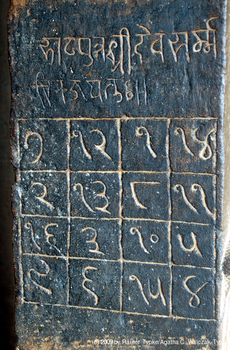 पुत्रश्रीदेवसर्म्म
७ १२ १ १४
२ १३ ८ ११
१६ ३ १० ५
९ ६ १५ ४
by Rainer Typke/Agatha C. Walczak-Ty